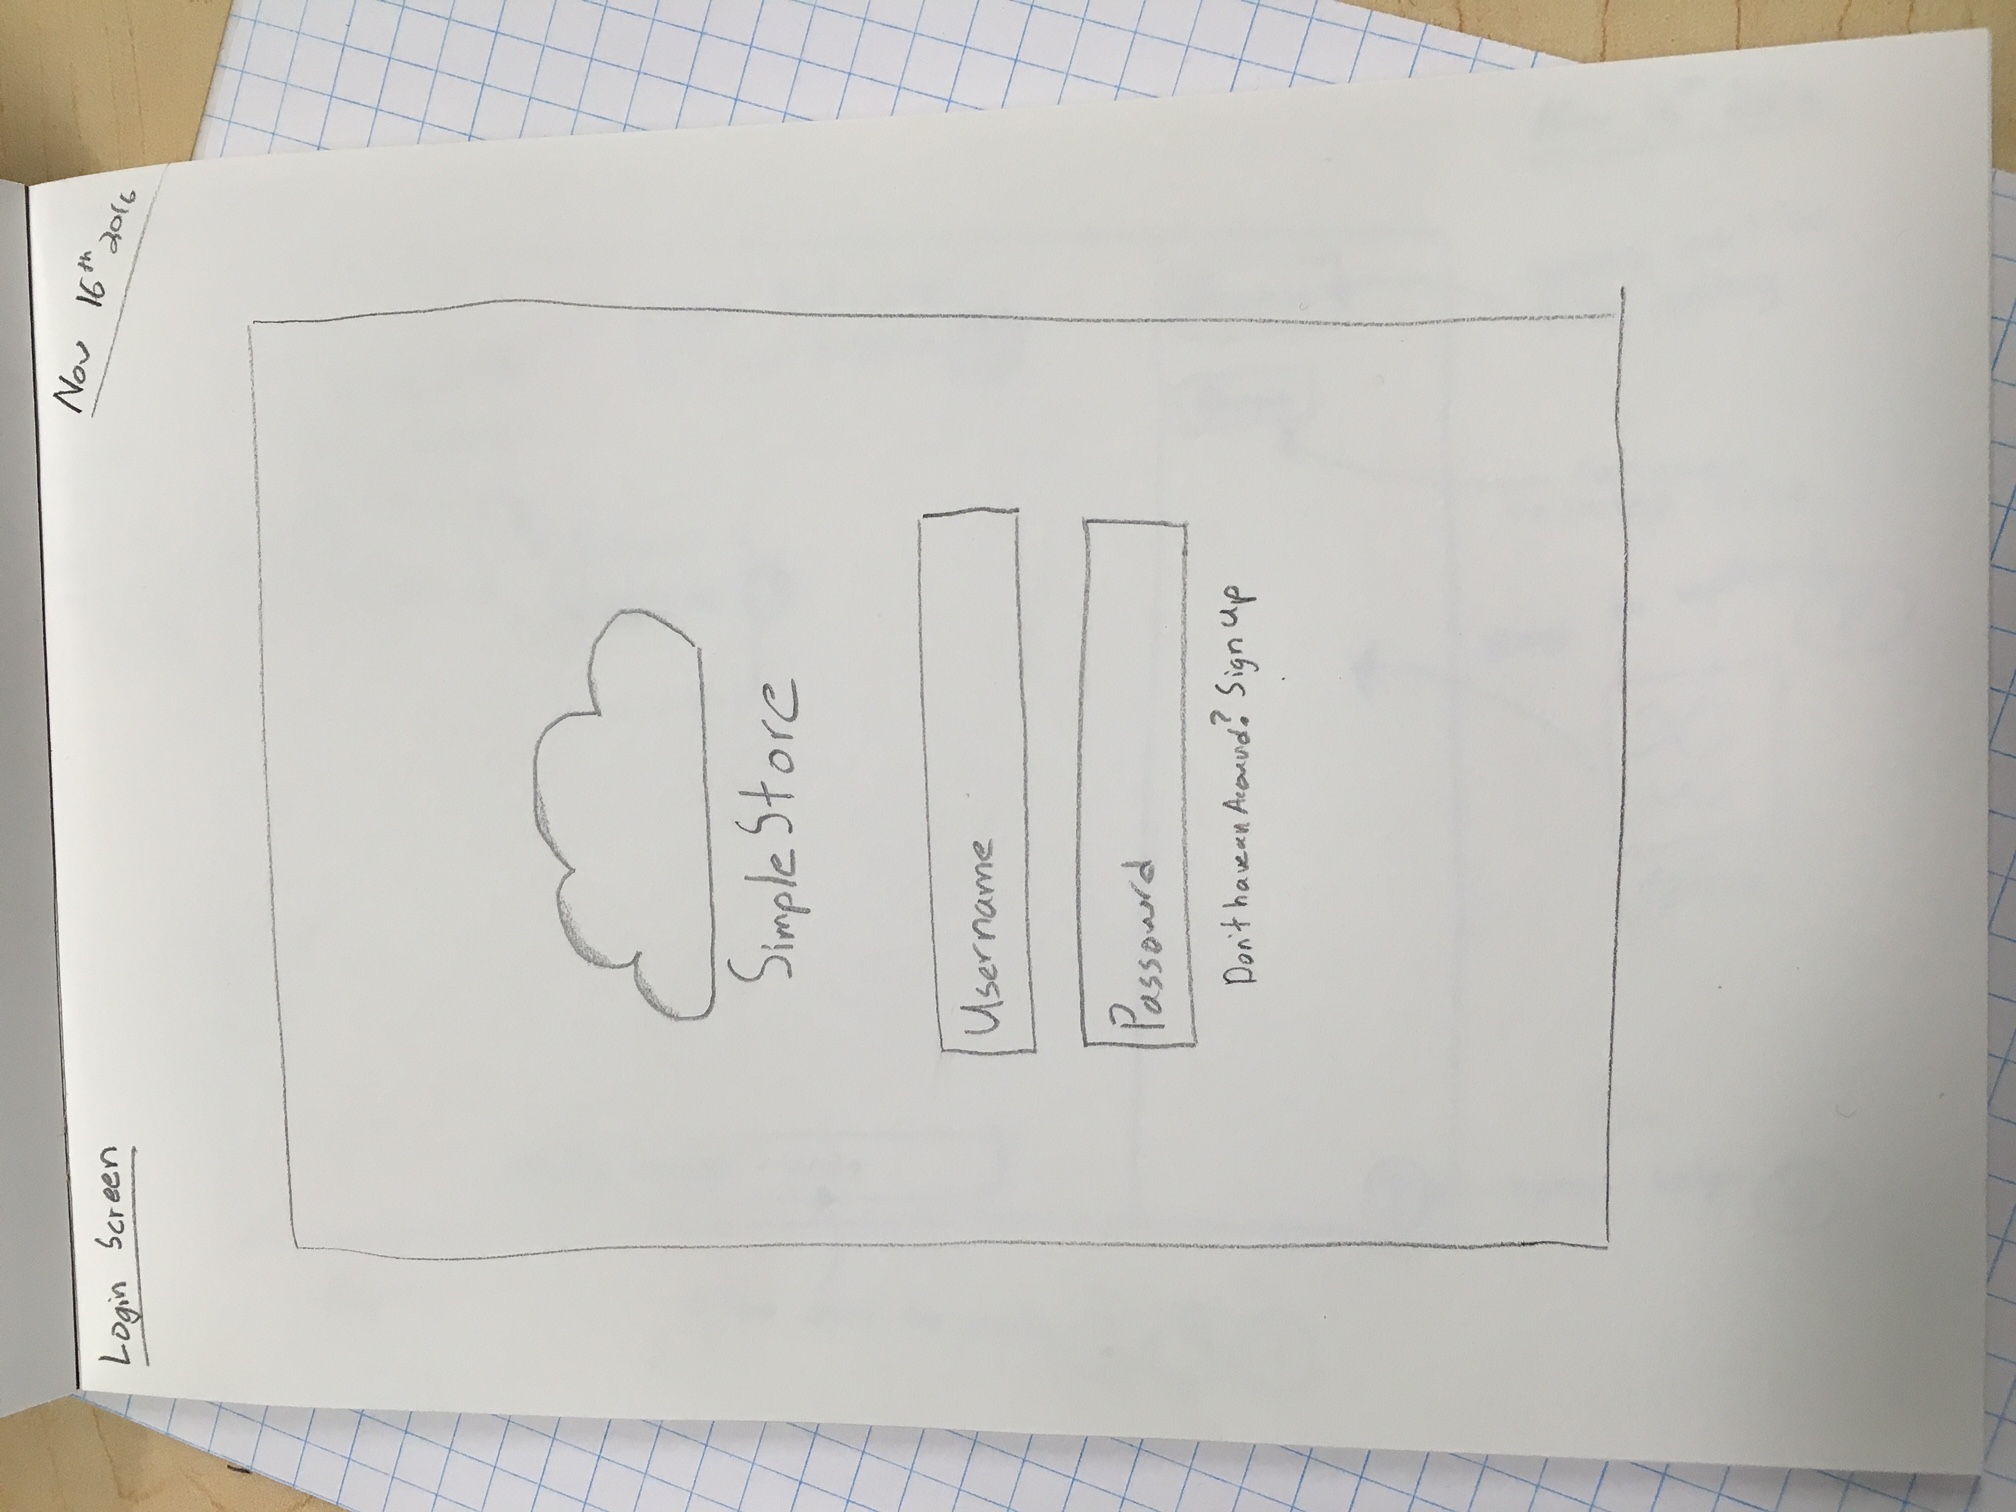 Login Screen
Nov 16th 2016
SimpleStore
Username
Passowrd
Don't have an Account? Sign Up